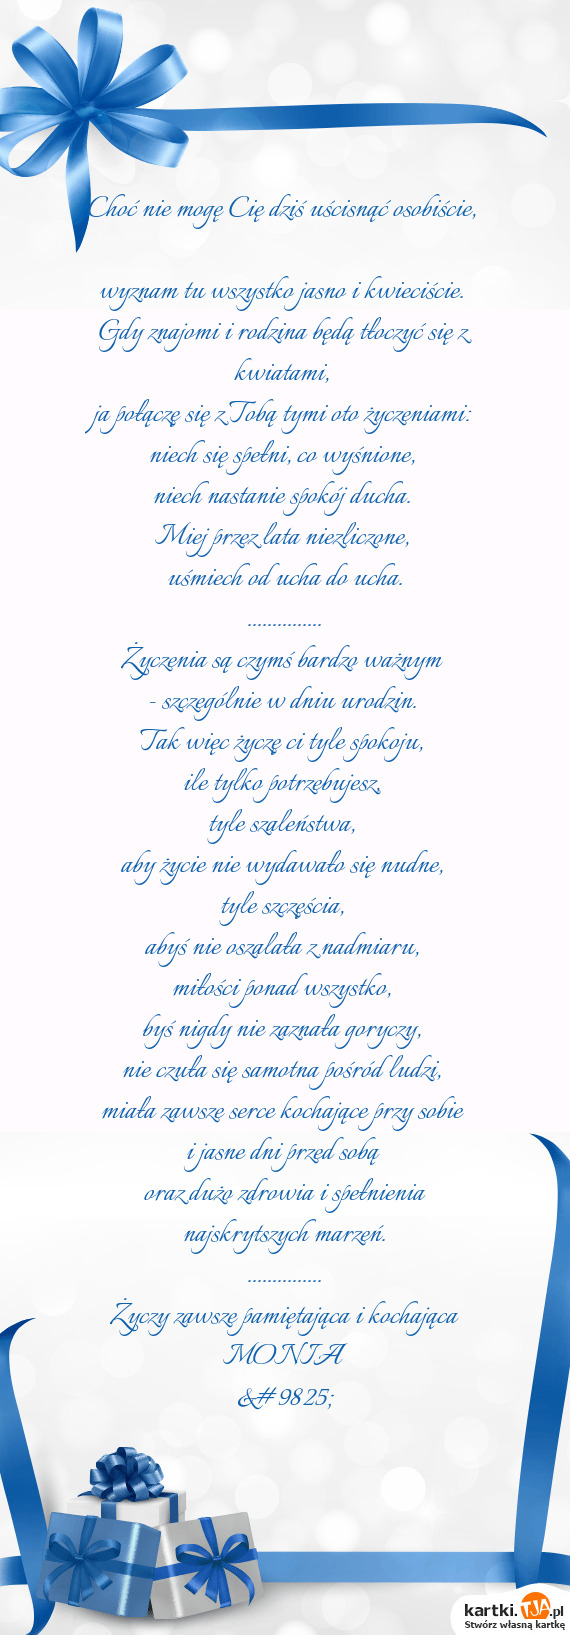 Choć nie mogę Cię dziś uścisnąć osobiście,
wyznam tu wszystko jasno i kwieciście.
Gdy znajomi i rodzina będą tłoczyć się z
kwiatami,
ja połączę się z Tobą tymi oto życzeniami:
niech się spełni, co wyśnione,
niech nastanie spokój ducha.
Miej przez lata niezliczone,
uśmiech od ucha do ucha.
...............
Życzenia są czymś bardzo ważnym
- szczególnie w dniu urodzin.
Tak więc życzę ci tyle spokoju,
ile tylko potrzebujesz,
tyle szaleństwa,
aby życie nie wydawało się nudne,
tyle szczęścia,
abyś nie oszalała z nadmiaru,
miłości ponad wszystko,
byś nigdy nie zaznała goryczy,
nie czuła się samotna pośród ludzi,
miała zawsze serce kochające przy sobie
i jasne dni przed sobą
oraz dużo zdrowia i spełnienia
najskrytszych marzeń.
...............
Życzy zawsze pamiętająca i kochająca
MONIA
&#9825;
kartki.TJA.pl
Stwórz własną kartkę